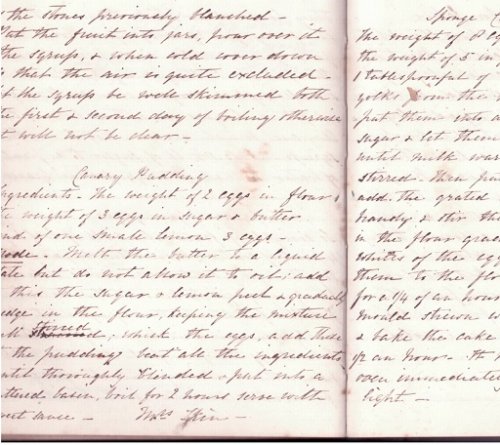 the stones previously blanched -
Put the fruit into jars, pour over it
the syrup, & when cold cover down
so that the air is quite excluded -
the syrup be well skimmed both
the first & second day of boiling otherwise
it will not be clear -
Canary Pudding
Ingredients - The weight of 2 eggs in flour,
weight of 3 eggs in sugar & butter
rind of one small lemon 3 eggs -
Mode - Melt the butter to a liquid
state but do not allow it to oil; add
this the sugar & lemon peel & gradually
dredge in the flour, keeping the mixture
stirred
well; whisk the eggs, add these
the pudding; beat all the ingredients
until thoroughly blended & put into a
buttered basin, boil for 2 hours serve with
sweet sauce - Mrs
Sponge
the weight of 8 eg
the weight of 5 in
1 tablespoonful of
yolks from the
put them into a
sugar & let them
until milk war
stirred. then pu
add the grated
brandy & stir th
in the flour grad
whites of the egg
them to the flo
for a 1/4 of an hour
mould strewn w
& bake the cake
1/2 an hour.
oven immediatel
light -